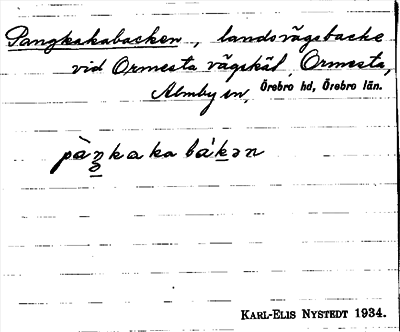 Pangkakabacken, landsvägsbacke
vid Ormesta vägskäl, Ormesta,
Almby sn, Örebro hd, Örebro län.
pàŋkaka bákən
KARL-ELIS NYSTEDT 1934.